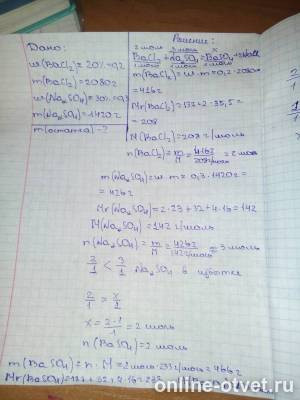 Дано:
w(BaCl₂)=20%=0,2
m(BaCl₂)=2080г
w(Na₂SO₄)=30%=0,3
m(Na₂SO₄)=1420г
m(остатка)-?
Решение:
2 моль 3 моль x
BaCl₂+Na₂SO₄=BaSO₄+2NaCl
1 моль 1 моль 1 моль
m(BaCl₂)=w·m=0,2·2080=
=416г
Mr(BaCl₂)=137+2·35,5=
=208
M(BaCl₂)=208 г/моль
n(BaCl₂)=m/M=416г/208г/моль=2 моль
m(Na₂SO₄)=w·m=0,3·1420=
=426г
Mr(Na₂SO₄)=2·23+32+4·16=142
M(Na₂SO₄)=142 г/моль
n(Na₂SO₄)=m/M=426г/142г/моль=3 моль
2/1 < 3/1 Na₂SO₄ в избытке
2/1 = x/1
x=2·1/1=2 моль
n(BaSO₄)=2 моль
m(BaSO₄)=n·M=2 моль·233 г/моль=466г
Mr(BaSO₄)=137+32+4·16=233
online-otvet.ru